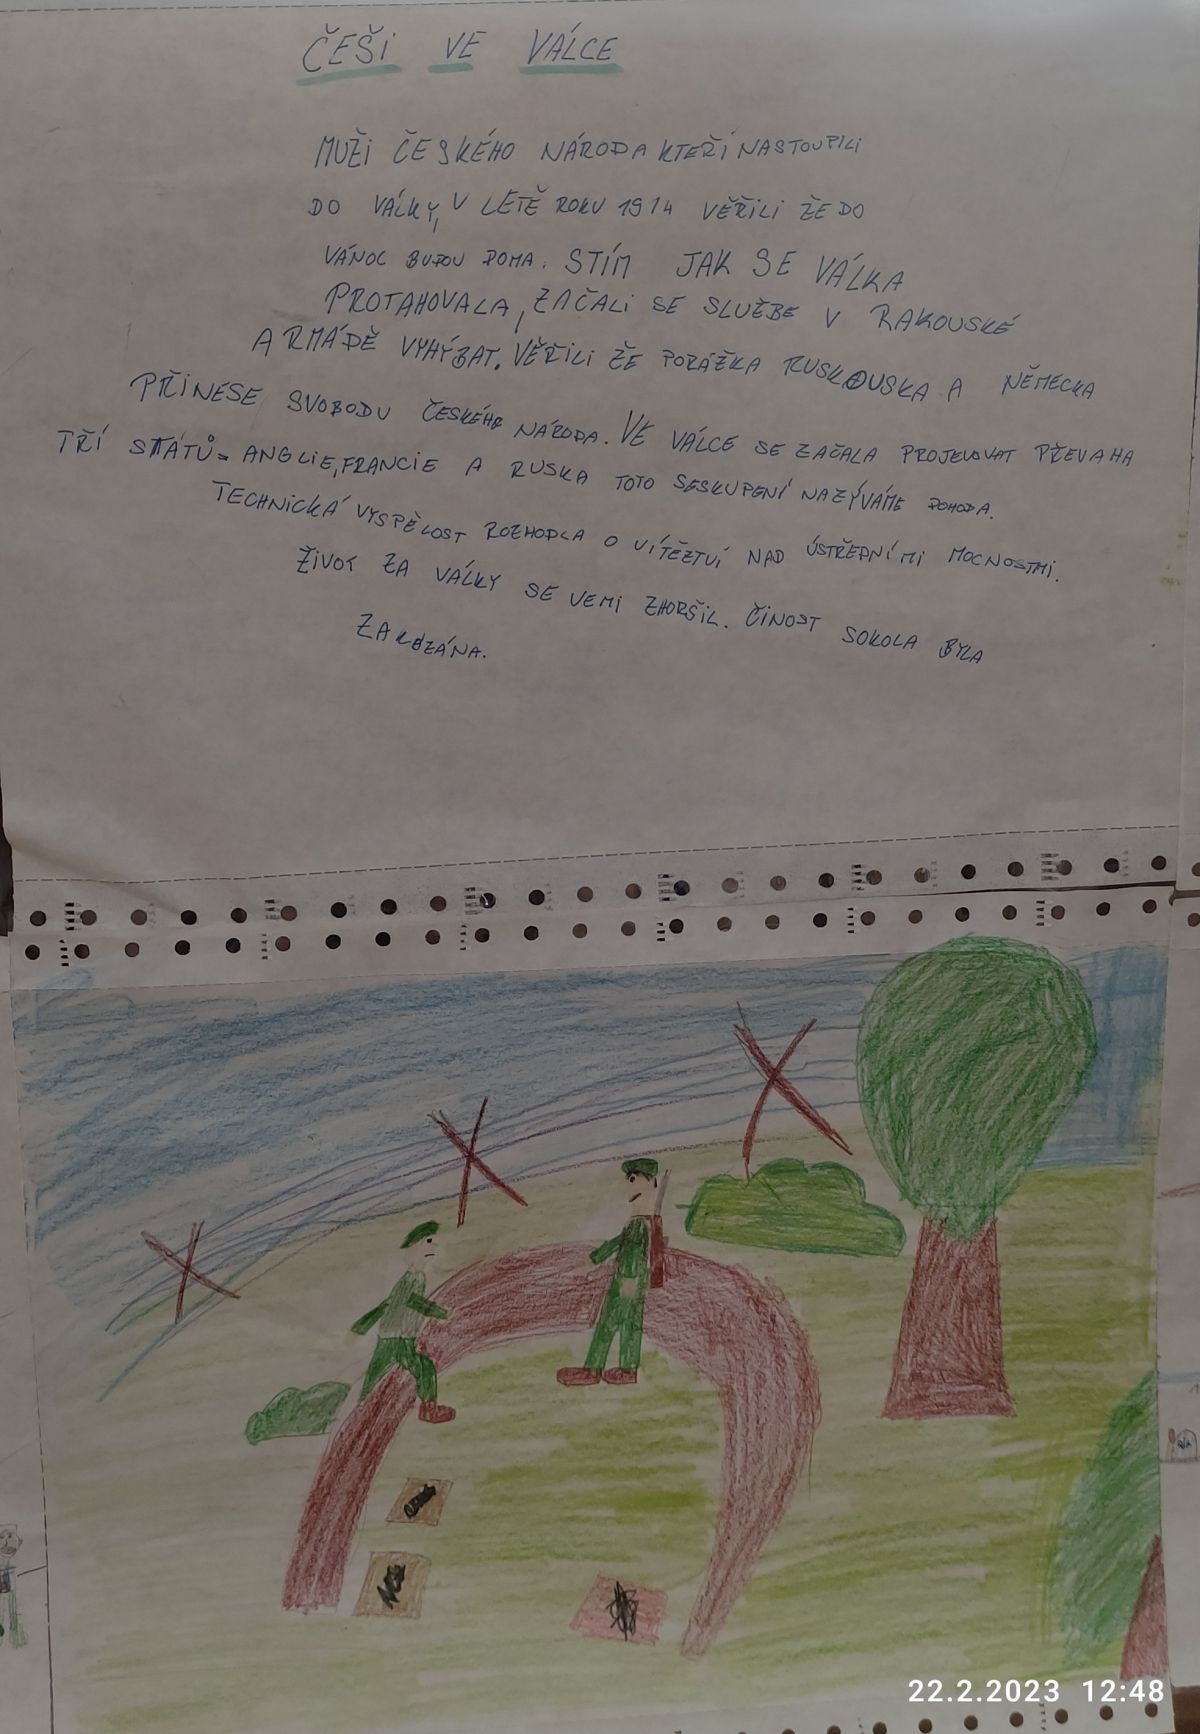 ČEŠI VE VÁLCE
MUŽI ČESKÉHO NÁRODA KTEŘÍ NASTOUPILI
DO VÁLKY, V LETĚ ROKU 1914 VĚŘILI ŽE DO
VÁNOC BUDOU DOMA. STÍM JAK SE VÁLKA
PROTAHOVALA, ZAČALI SE SLUŽBE V RAKOUSKÉ
ARMÁDĚ VYHÝBAT. VĚŘILI ŽE PORÁŽKA RUSKOUSKA A NĚMECKA
PŘINESE SVOBODU ČESKÉHO NÁRODA. VE VÁLCE SE ZAČALA PROJEVOVAT PŘEVAHA
TŘÍ STÁTŮ - ANGLIE, FRANCIE A RUSKA TOTO SESKUPENÍ NAZÝVÁME DOHODA.
TECHNICKÁ VYSPĚLOST ROZHODLA O VÍTĚZTVÍ NAD ÚSTŘEDNÍMI MOCNOSTMI.
ŽIVOT ZA VÁLKY SE VEMI ZHORŠIL. ČINOST SOKOLA BYLA
ZAKÁZÁNA.
22.2.2023 12:48